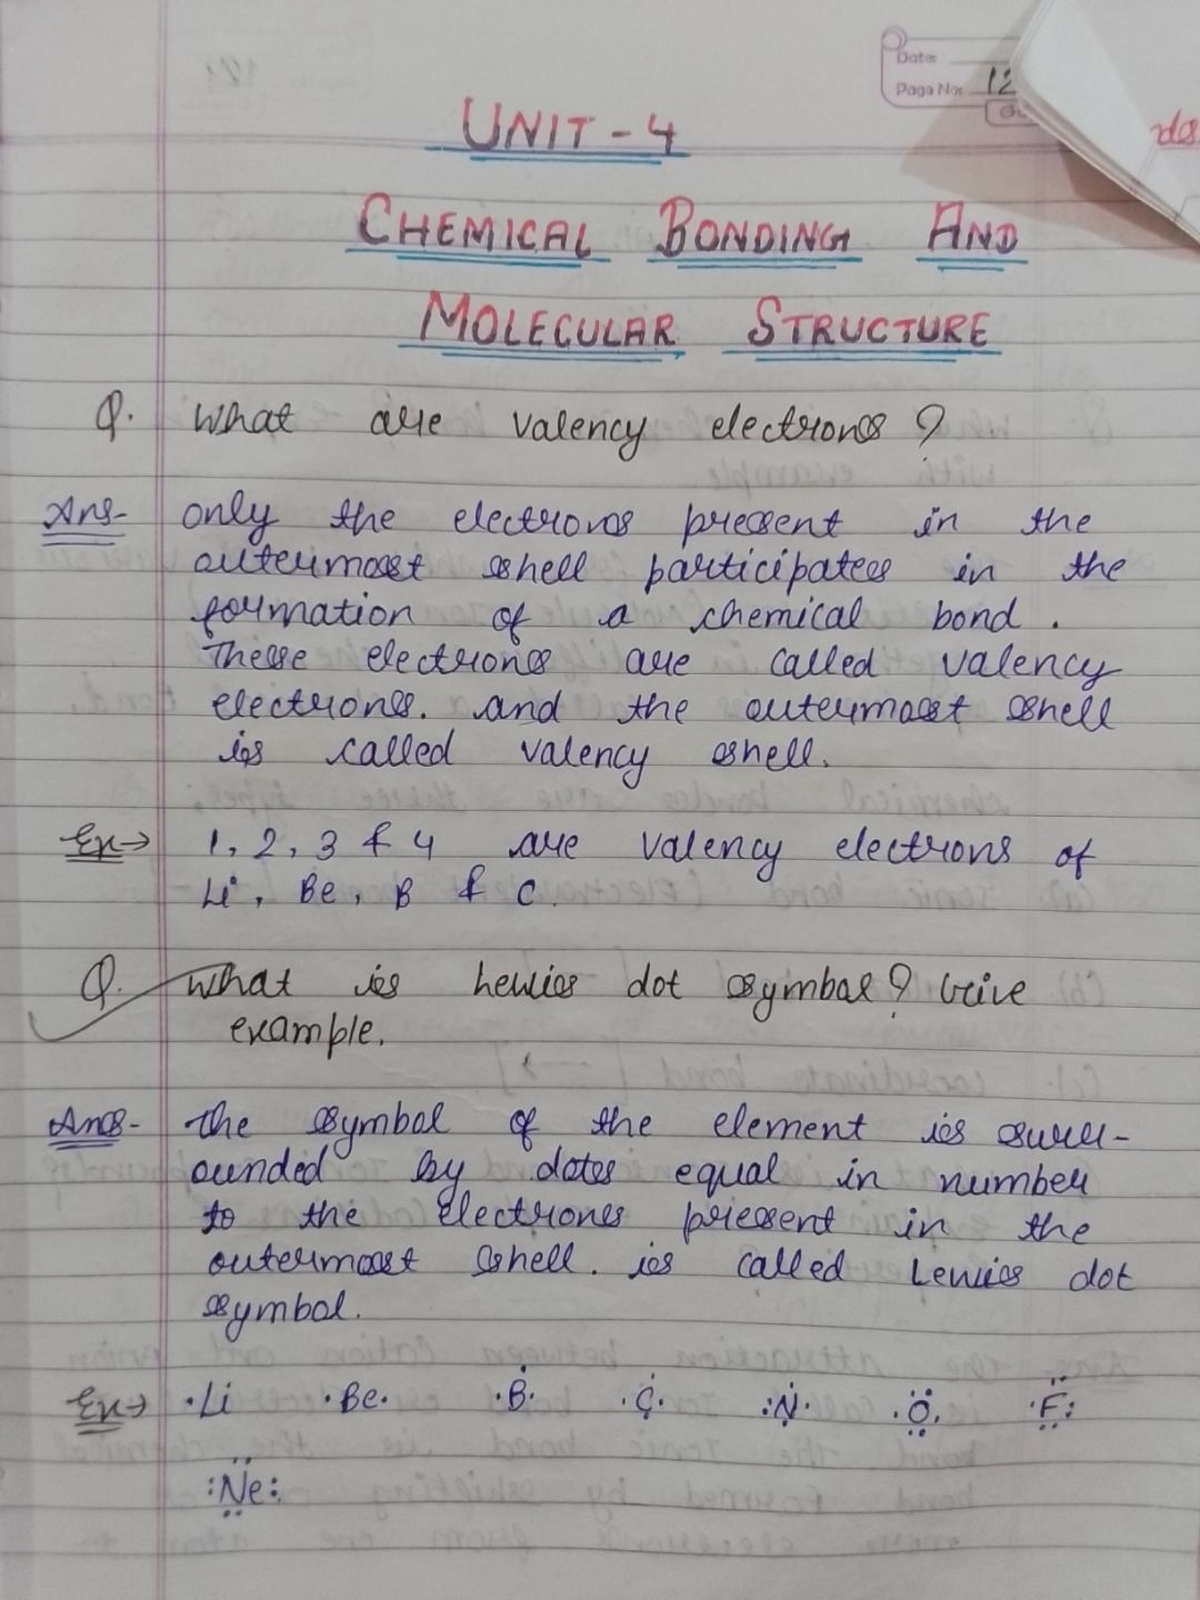 Date:
Page No: 12
UNIT - 4
CHEMICAL BONDING AND
MOLECULAR STRUCTURE
Q. What are valency electrons ?
Ans- only the electrons present in the
outermost shell participates in the
formation of a chemical bond .
These electrons are called valency
electrons. and the outermost shell
is called valency shell.
Ex→ 1, 2, 3 & 4 are valency electrons of
Li, Be, B & C.
Q. What is hewies dot symbal ? Give
example.
Ans- The symbol of the element is surr-
ounded by dotes equal in number
to the electrons present in the
outermost shell. is called Lewies dot
symbol.
Ex→ ·Li ·Be· ·B· ·C· :N· ·O· ·F:
:Ne: